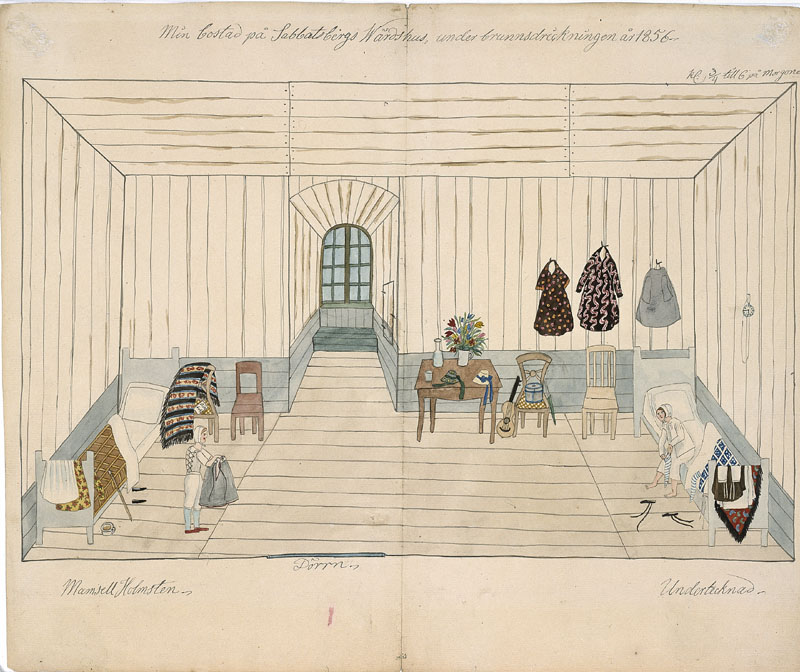 Min bostad på Sabbatsbergs Wärdshus, under brunnsdrickningen år 1856.
Kl. ¾ till 6 på morgone
Dörrn.
Mamsell Holmsten.
Undertecknad.